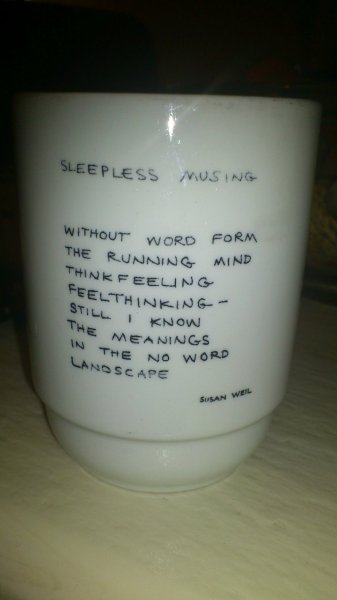 SLEEPLESS MUSING
WITHOUT WORD FORM
THE RUNNING MIND
THINKFEELING
FEELTHINKING-
STILL I KNOW
THE MEANINGS
IN THE NO WORD
LANDSCAPE
SUSAN WEIL